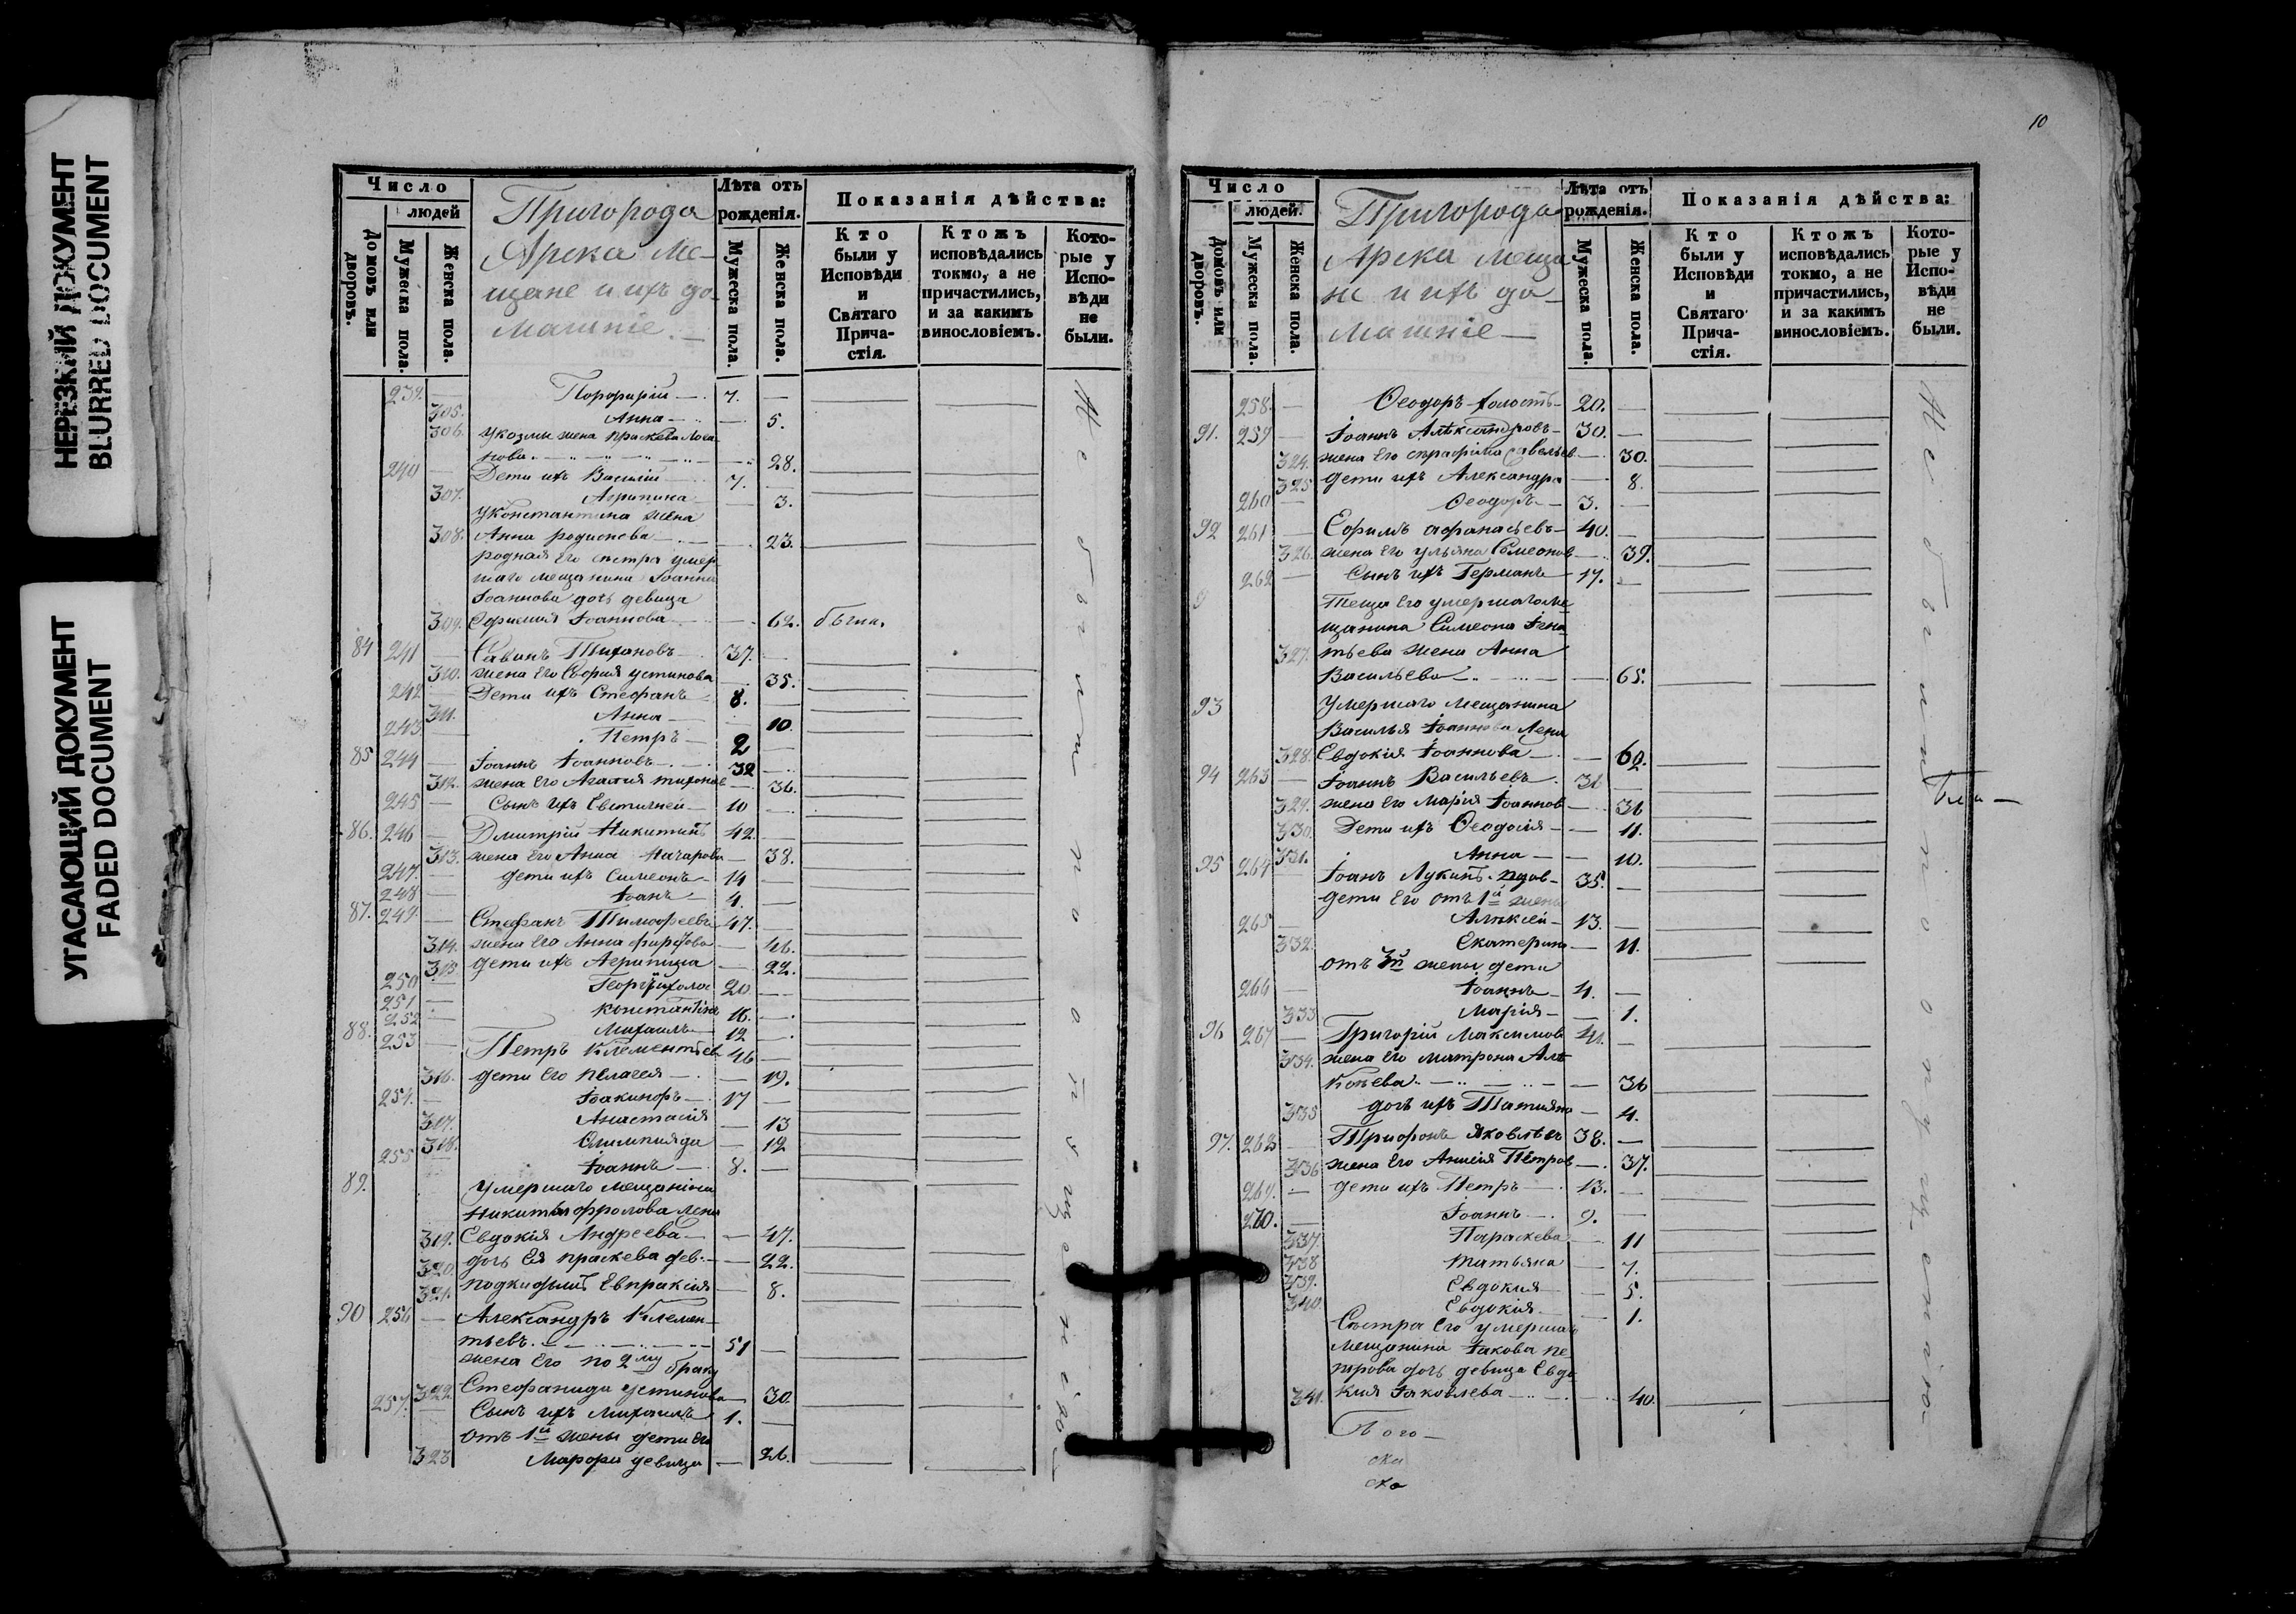 НЕРЕЗКИЙ ДОКУМЕНТ
BLURRED DOCUMENT
УГАСАЮЩИЙ ДОКУМЕНТ
FADED DOCUMENT
Число
людей
Домовъ или дворовъ.
Мужеска пола.
Женска пола.
Пригорода
Арска Ме-
щане и ихъ до-
машніе.
Лѣта отъ
рожденія.
Мужеска пола.
Женска пола.
Показанія дѣйства:
Кто были у Исповѣди и Святаго Прича-стія.
Ктожъ исповѣдались токмо, а не причастились, и за какимъ винословіемъ.
Кото-рые у Испо-вѣди не были.
239. — Порфирій — 7. —
305. Анна — 5.
306. жена Праскева
нова. — 28.
240 — Дети ихъ Василій — 7.
307. Агрипина — 3.
Уконстантина жена
308. Анна родионова — 23.
родная Его сестра умер
шаго мещанина Іоанна
Іоаннова дочь девица
309. Іоаннова — 62.
84 241 — Тихоновъ — 37. —
310. жена Его София устинова — 35.
242 — Дети ихъ Стефанъ — 8. —
311. Анна — 10.
243. — Петръ — 2 —
85 244 — Іоаннъ Іоанновъ — 32 —
312. жена Его Агафия — 36.
245 — Сынъ ихъ — 10 —
86. 246 — Дмитрій Никитинъ 42. —
313. жена Его Анна — 38.
247. — дети ихъ Симеонъ — 14 —
248 — Іоанъ — 4. —
87. 249. — Стефанъ Тимофеевъ 47. —
314. жена Его Анна — 46.
315 дети ихъ Агрипина — 22.
250 — Георгій холос 20 —
251 — константинъ 16. —
252 — Михаилъ — 12 —
88. 253 — Петръ Клементьев 46 —
316. дети Его Пелагея — 19.
254. — Іоакинфъ — 17 —
317. Анастасія — 13
318. Олимпияда — 12
255 — Іоаннъ — 8. —
89. Умершаго мещанина
Никиты Фролова жена
319. Евдокія Андреева — 47.
320 дочь Ея праскева дев. — 22.
321. Евпраксія — 8.
90 256 — Александръ Клемен-
тьевъ. — 51 —
жена Его по 2му браку
322 Стефанида устинова — 30.
257. — Сынъ ихъ Михаилъ 1. —
отъ 1й жены дети Его
323 Марфа девица — 26.
10
Число
людей.
Домовъ или дворовъ.
Мужеска пола.
Женска пола.
Пригорода
Арска меща
не и ихъ до-
машніе —
Лѣта отъ
рожденія.
Мужеска пола.
Женска пола.
Показанія дѣйства:
Кто были у Исповѣди и Святаго Прича-стія.
Ктожъ исповѣдались токмо, а не причастились, и за какимъ винословіемъ.
Кото-рые у Испо-вѣди не были.
258. — Феодоръ холостъ — 20. —
91. 259 — Іоаннъ Александровъ — 30. —
324. жена Его Савельев — 30.
325. дети ихъ Александра — 8.
260 — Феодоръ — 3. —
92 261 — Ефимъ афанасьевъ — 40. —
326. жена Его ульяна Семеонов — 39.
262 — Сынъ ихъ Германъ — 17. —
Теща Его умершаго ме
щанина Симеона Игна
327. тьева жена Анна
Васильева — 65.
93 Умершаго мещанина
Василья Іоаннова жена
328. Евдокія Іоаннова — 60.
94 263 — Іоаннъ Васильевъ. 36 —
329. жена Его Марія Іоаннов — 36
330. Дети ихъ Феодосия — 11.
331. Анна — 10.
95 264 — Іоанъ Лукинъ вдов — 35. —
дети Его отъ 1й жены
265 — Алексей — 13. —
332. Екатерина — 11.
отъ 3й жены дети
266 — Іоаннъ — 4. —
333 Марія — 1.
96 267 — Григорій Максимов 41. —
334. жена Его матрона Але
— 36
335 дочь ихъ Татияна — 4.
97. 268 Трифонъ Яковлевъ 38. —
336 жена Его Анисія Петров — 37.
269. — дети ихъ Петръ — 13. —
270. — Іоаннъ — 9. —
337. Параскева — 11
338 татьяна — 7.
339. Евдокия — 5.
340 Евдокія — 1.
Сестра Его умершаго
мещанина Іакова пе
трова дочь девица Евдо
341. кия Іаковлева — 40.